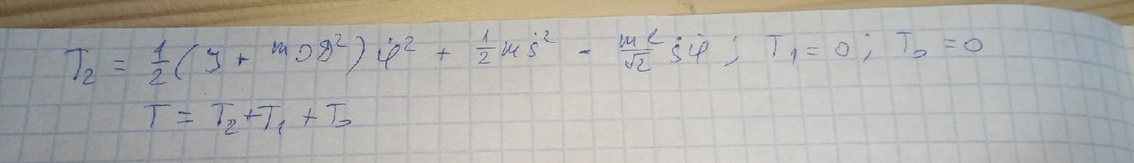 T₂ = 1/2 (J + mOD²) φ̇² + 1/2 mṡ² - mℓ/√2 ṡφ̇ ; T₁ = 0 ; T₀ = 0
T = T₂ + T₁ + T₀